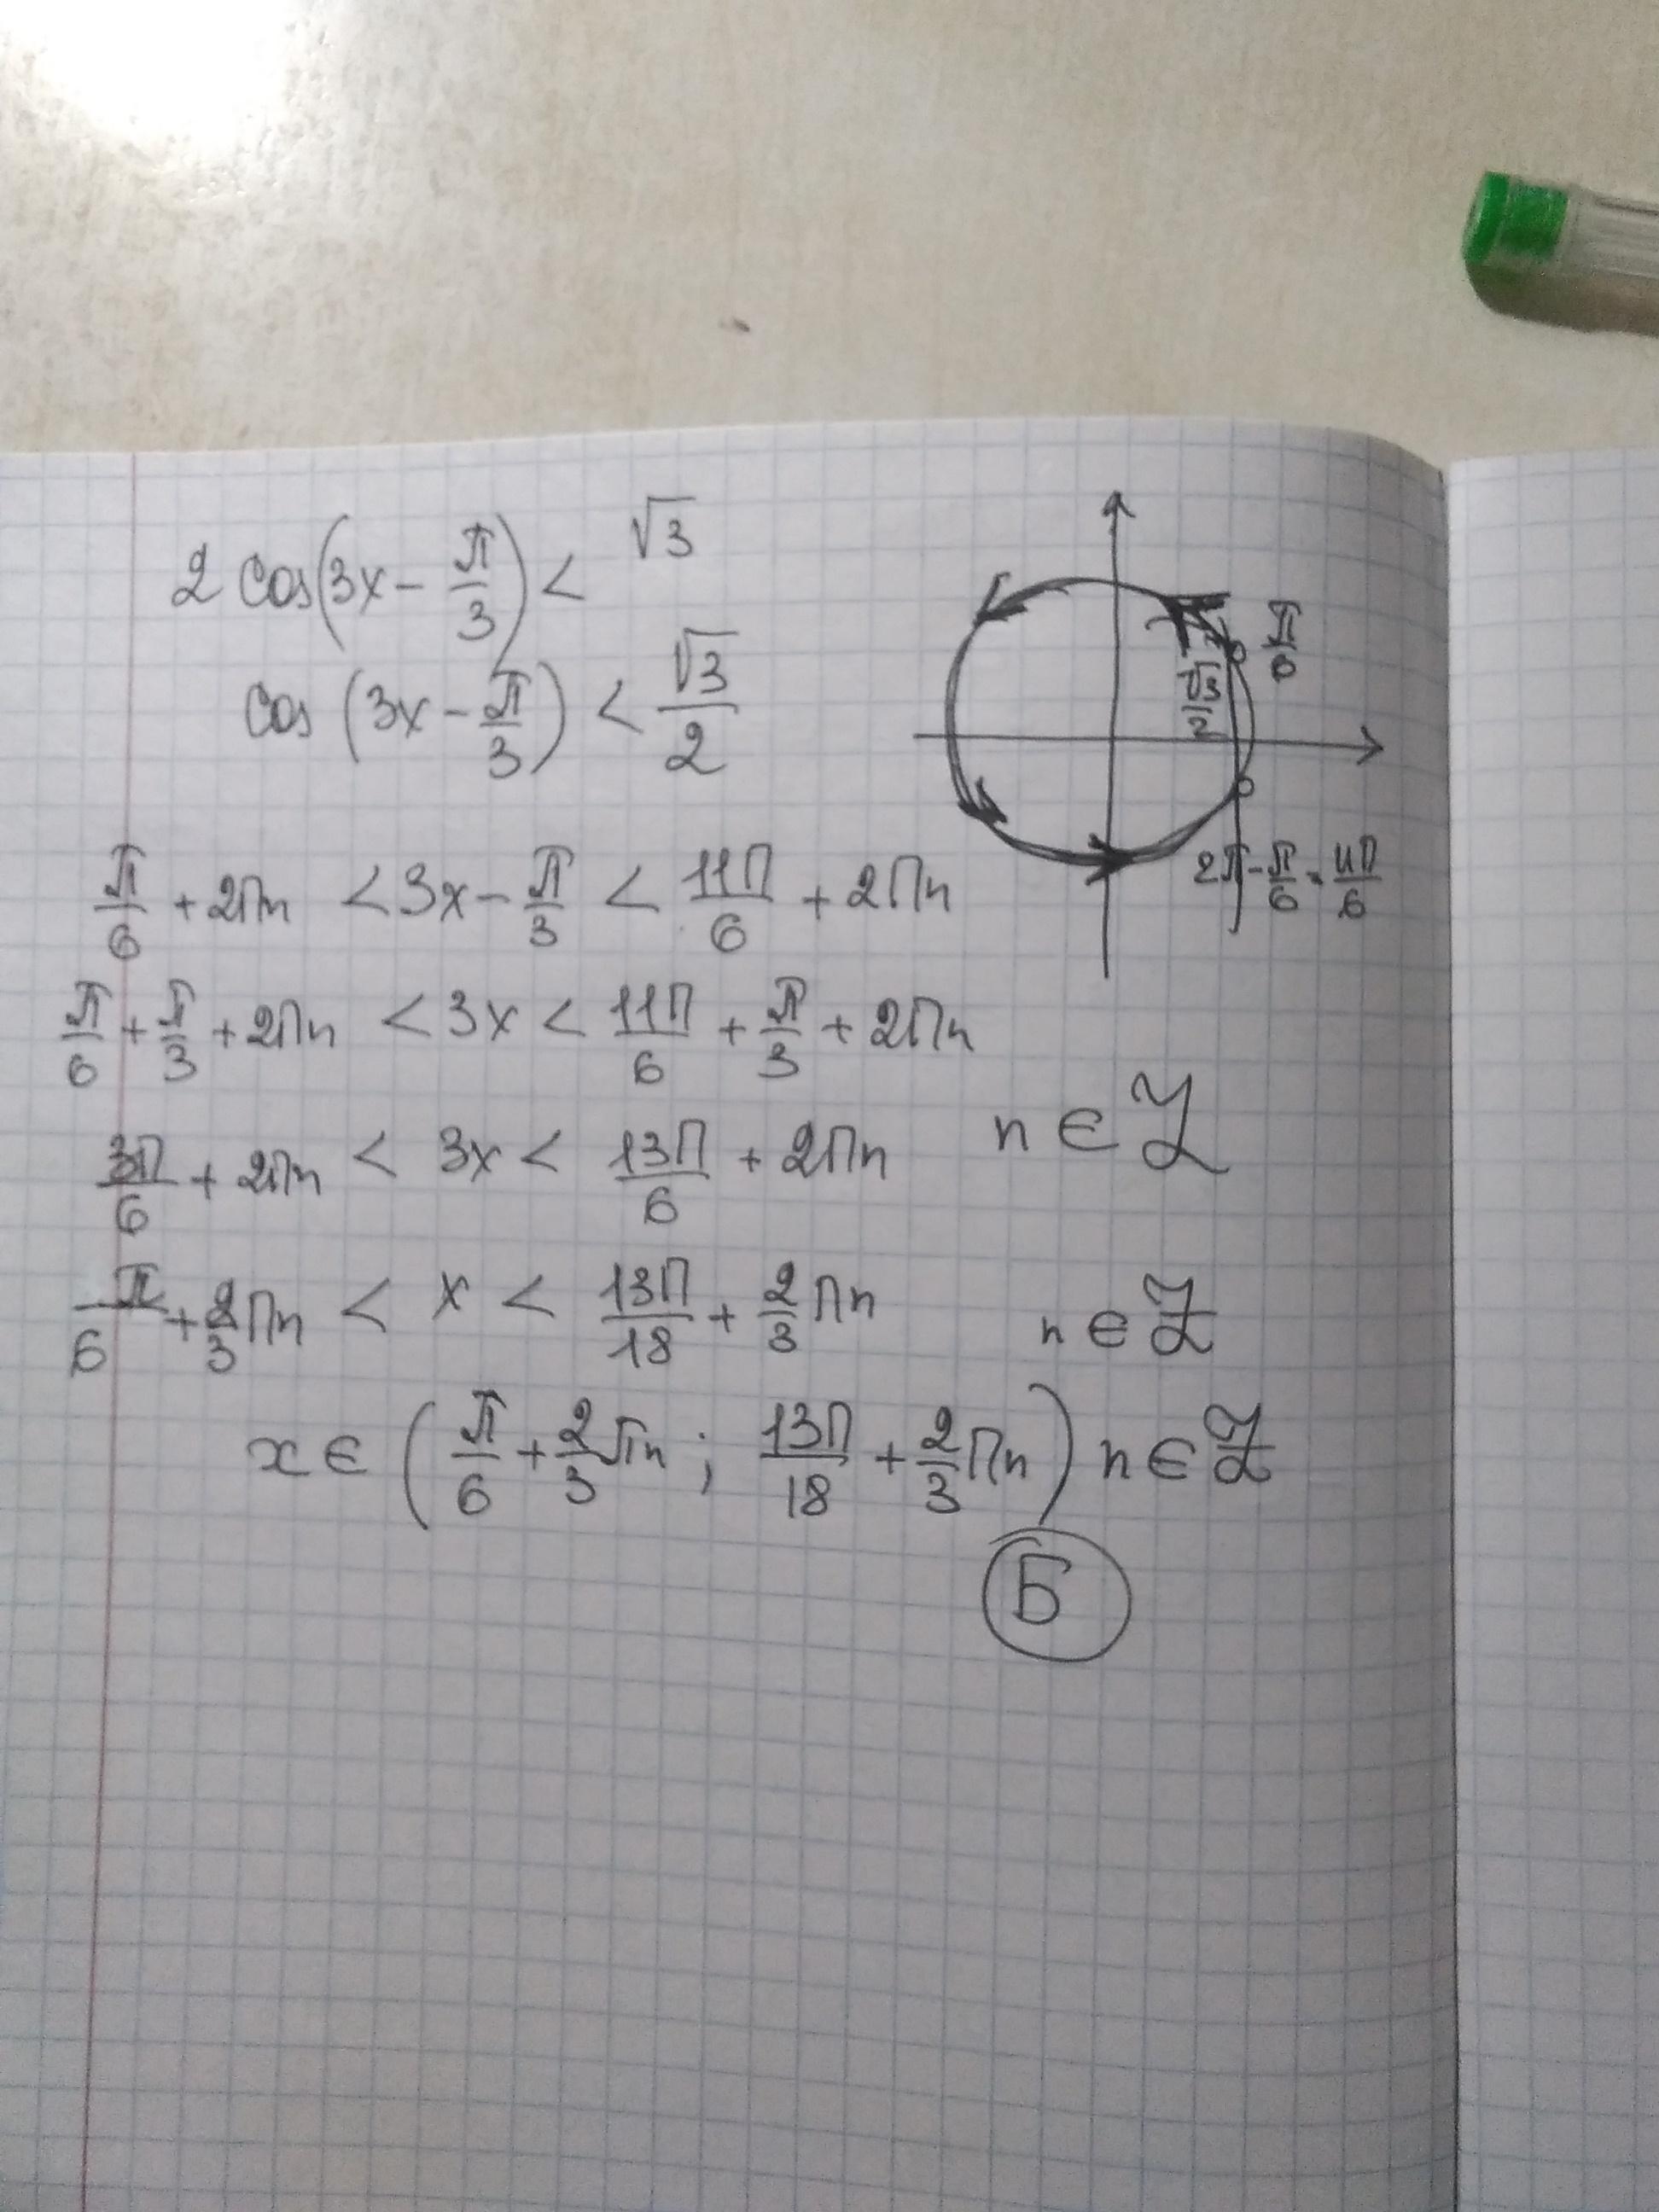 2 cos(3x - π/3) < √3
cos (3x - π/3) < √3/2
π/6
√3/2
2π - π/6 = 11π/6
π/6 + 2πn < 3x - π/3 < 11π/6 + 2πn
π/6 + π/3 + 2πn < 3x < 11π/6 + π/3 + 2πn
3π/6 + 2πn < 3x < 13π/6 + 2πn n ∈ Z
π/6 + 2/3 πn < x < 13π/18 + 2/3 πn n ∈ Z
x ∈ (π/6 + 2/3 πn ; 13π/18 + 2/3 πn) n ∈ Z
Б